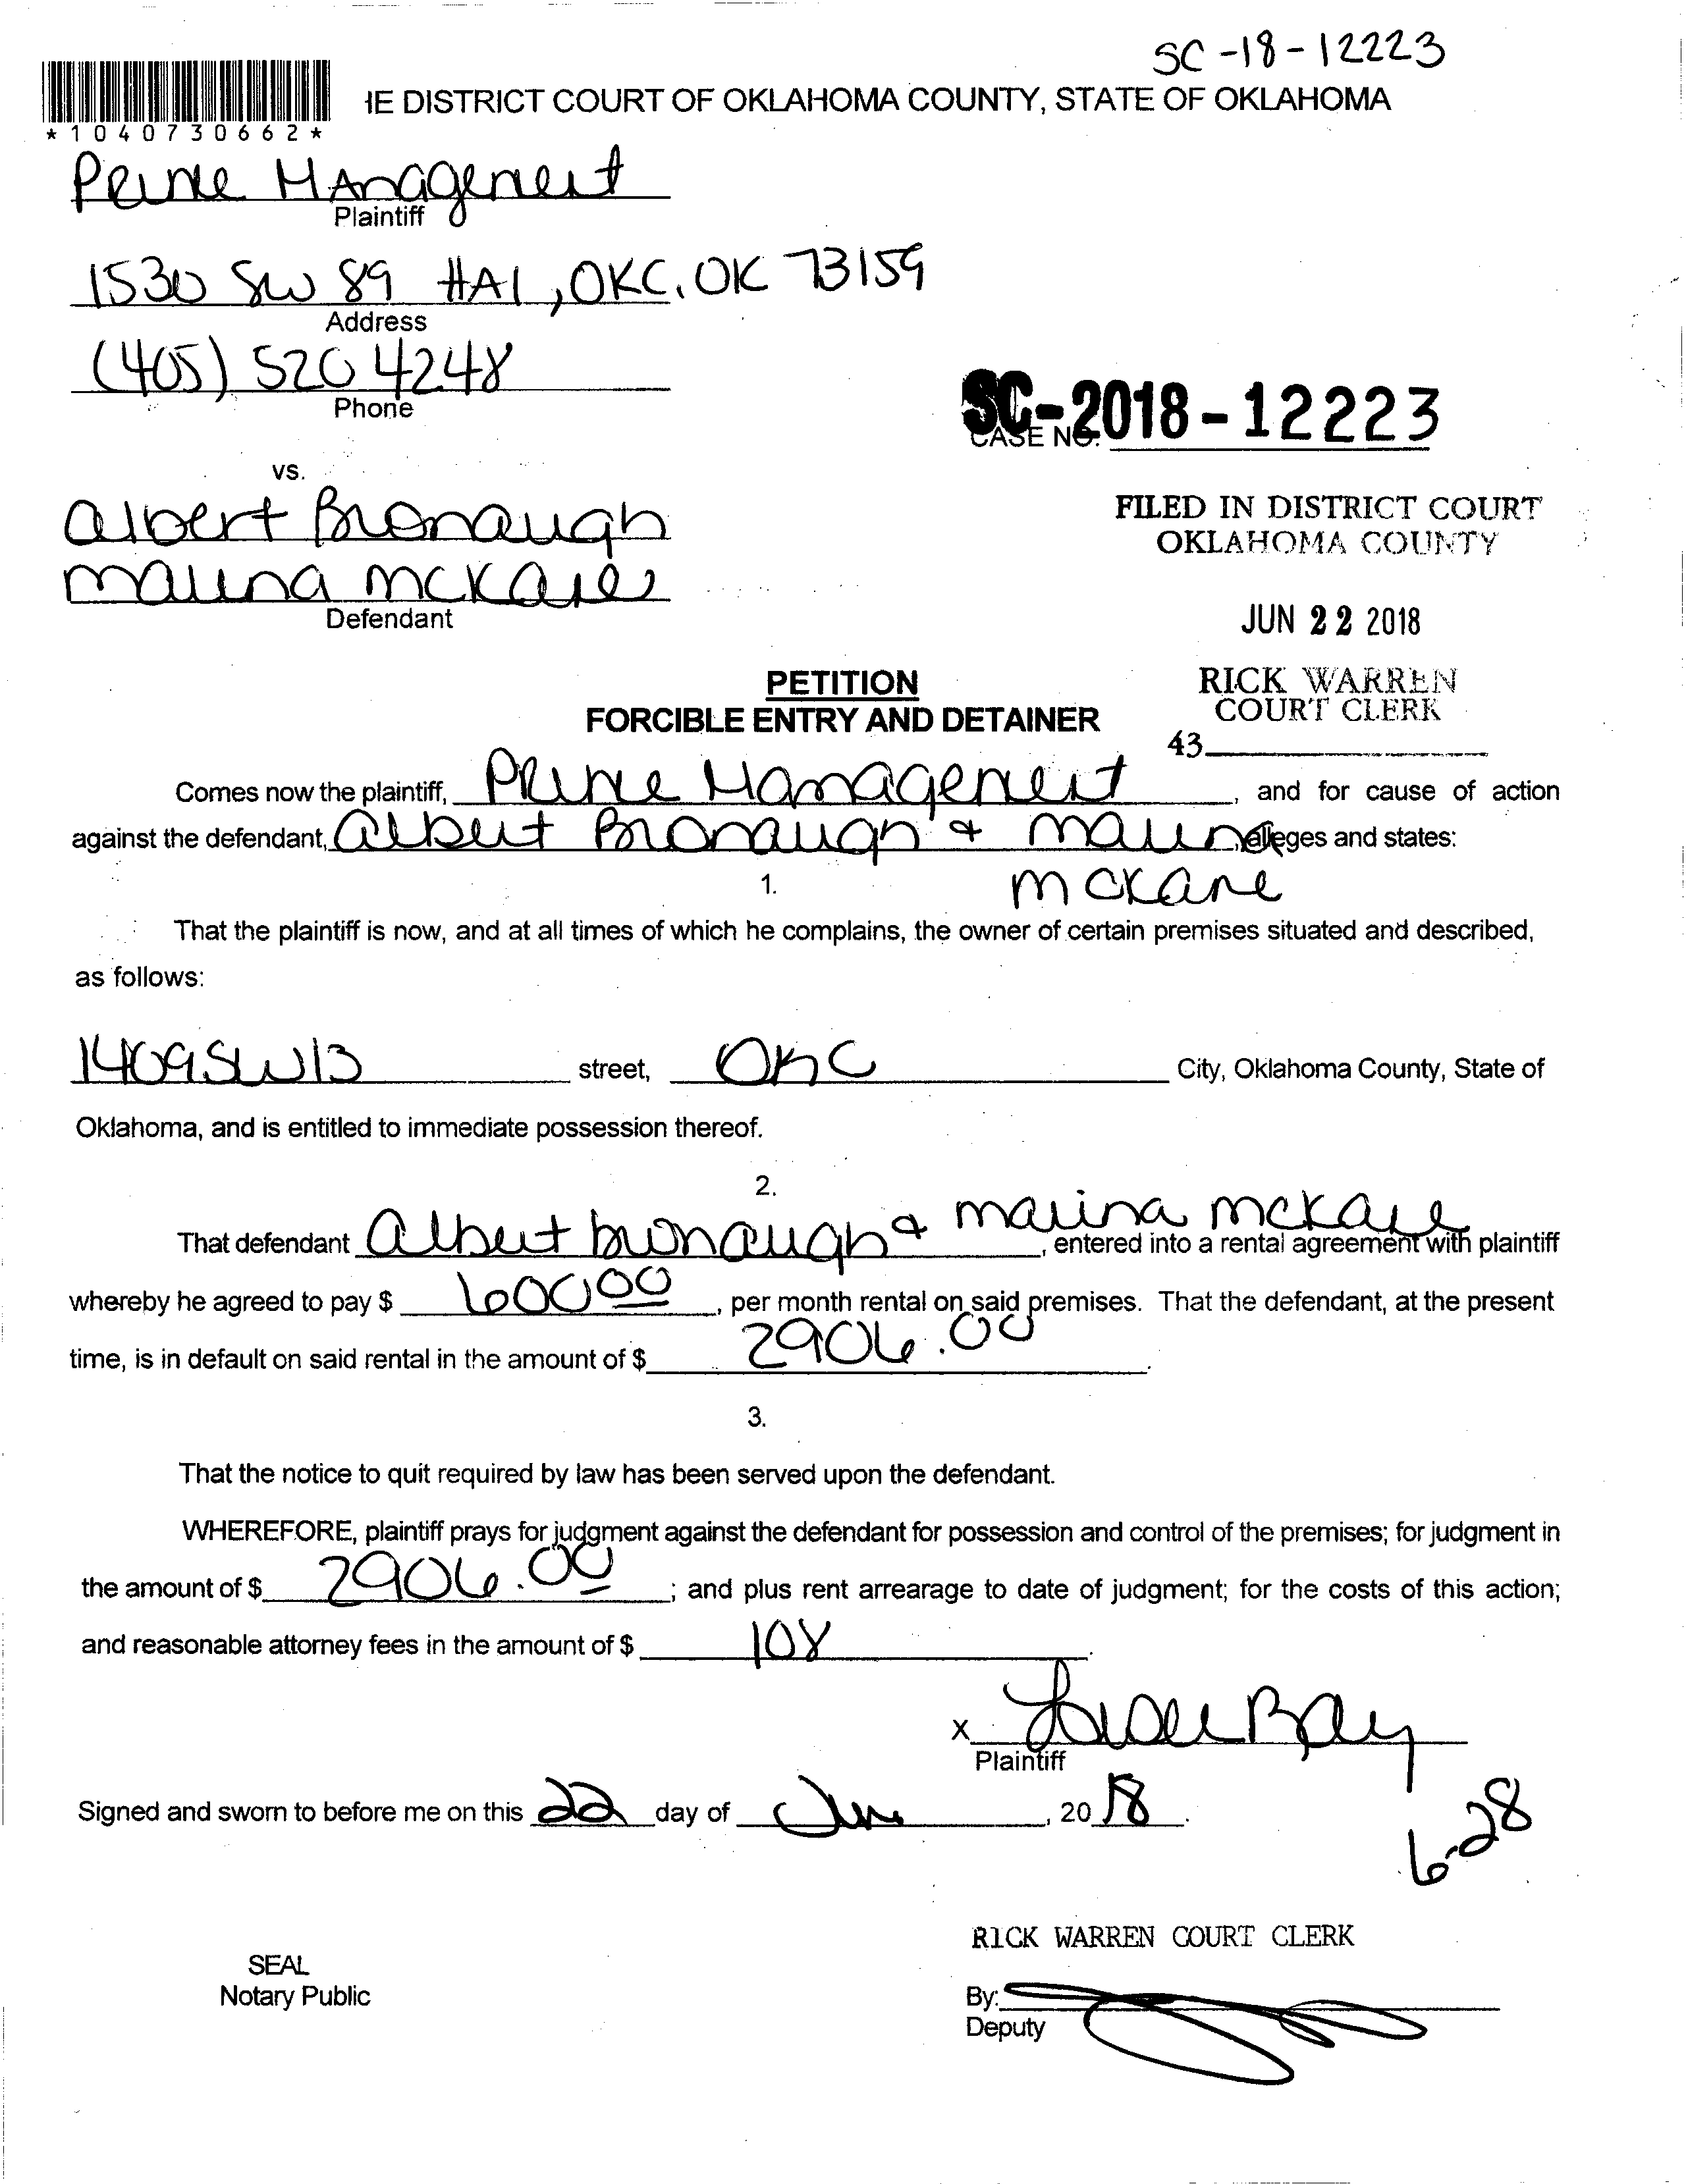 SC-18-12223
IE DISTRICT COURT OF OKLAHOMA COUNTY, STATE OF OKLAHOMA
*1040730662*
Prime Management
Plaintiff
1530 SW 89 #A1, OKC, OK 73159
Address
(405) 520 4248
Phone
SC-2018-12223
CASE NO.
vs.
Albert Bronaugh
FILED IN DISTRICT COURT
OKLAHOMA COUNTY
Marina McKane
Defendant
JUN 22 2018
PETITION
RICK WARREN
FORCIBLE ENTRY AND DETAINER
COURT CLERK
43
Comes now the plaintiff, Prime Management, and for cause of action
against the defendant, Albert Bronaugh & Marina alleges and states:
McKane
1.
That the plaintiff is now, and at all times of which he complains, the owner of certain premises situated and described,
as follows:
1409 SW 13 street, OKC City, Oklahoma County, State of
Oklahoma, and is entitled to immediate possession thereof.
2.
That defendant Albert bronaugh & marina mckane, entered into a rental agreement with plaintiff
whereby he agreed to pay $ 600 00, per month rental on said premises. That the defendant, at the present
time, is in default on said rental in the amount of $ 2906.00.
3.
That the notice to quit required by law has been served upon the defendant.
WHEREFORE, plaintiff prays for judgment against the defendant for possession and control of the premises; for judgment in
the amount of $ 2906.00; and plus rent arrearage to date of judgment; for the costs of this action;
and reasonable attorney fees in the amount of $ 108.
X
Plaintiff
Signed and sworn to before me on this 22 day of June, 20 18.
6-28
RICK WARREN COURT CLERK
SEAL
Notary Public
By:
Deputy